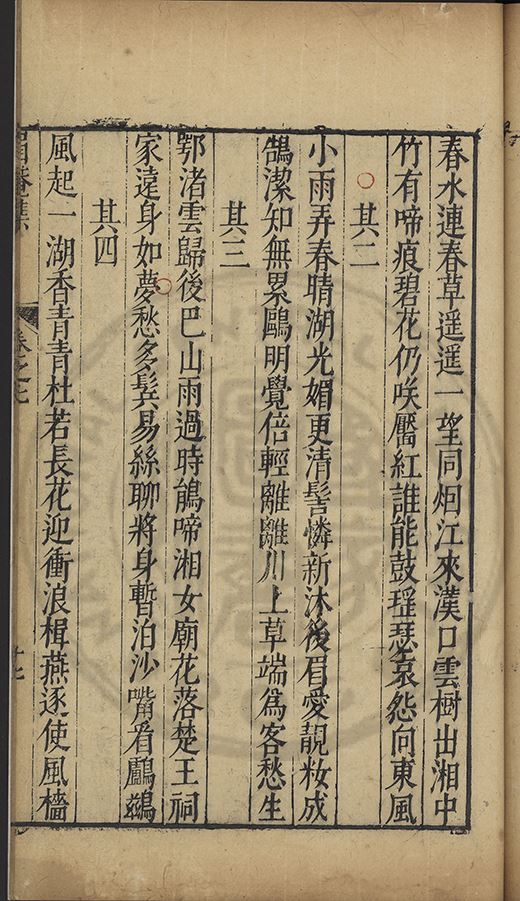 春水連春草遥遥一望同烟江來漢口雲樹出湘中
竹有啼痕碧花仍咲靨紅誰能鼓瑶瑟哀怨向東風
其二
小雨弄春晴湖光媚更清髻憐新沐後眉愛靚粧成
鵠潔知無累鷗明覺倍輕離離川上草端爲客愁生
其三
鄂渚雲歸後巴山雨過時鵑啼湘女廟花落楚王祠
家遠身如夢愁多鬂易絲聊將身暫泊沙嘴看鸕鷀
其四
風起一湖香青青杜若長花迎衝浪楫燕逐使風檣
卷之七